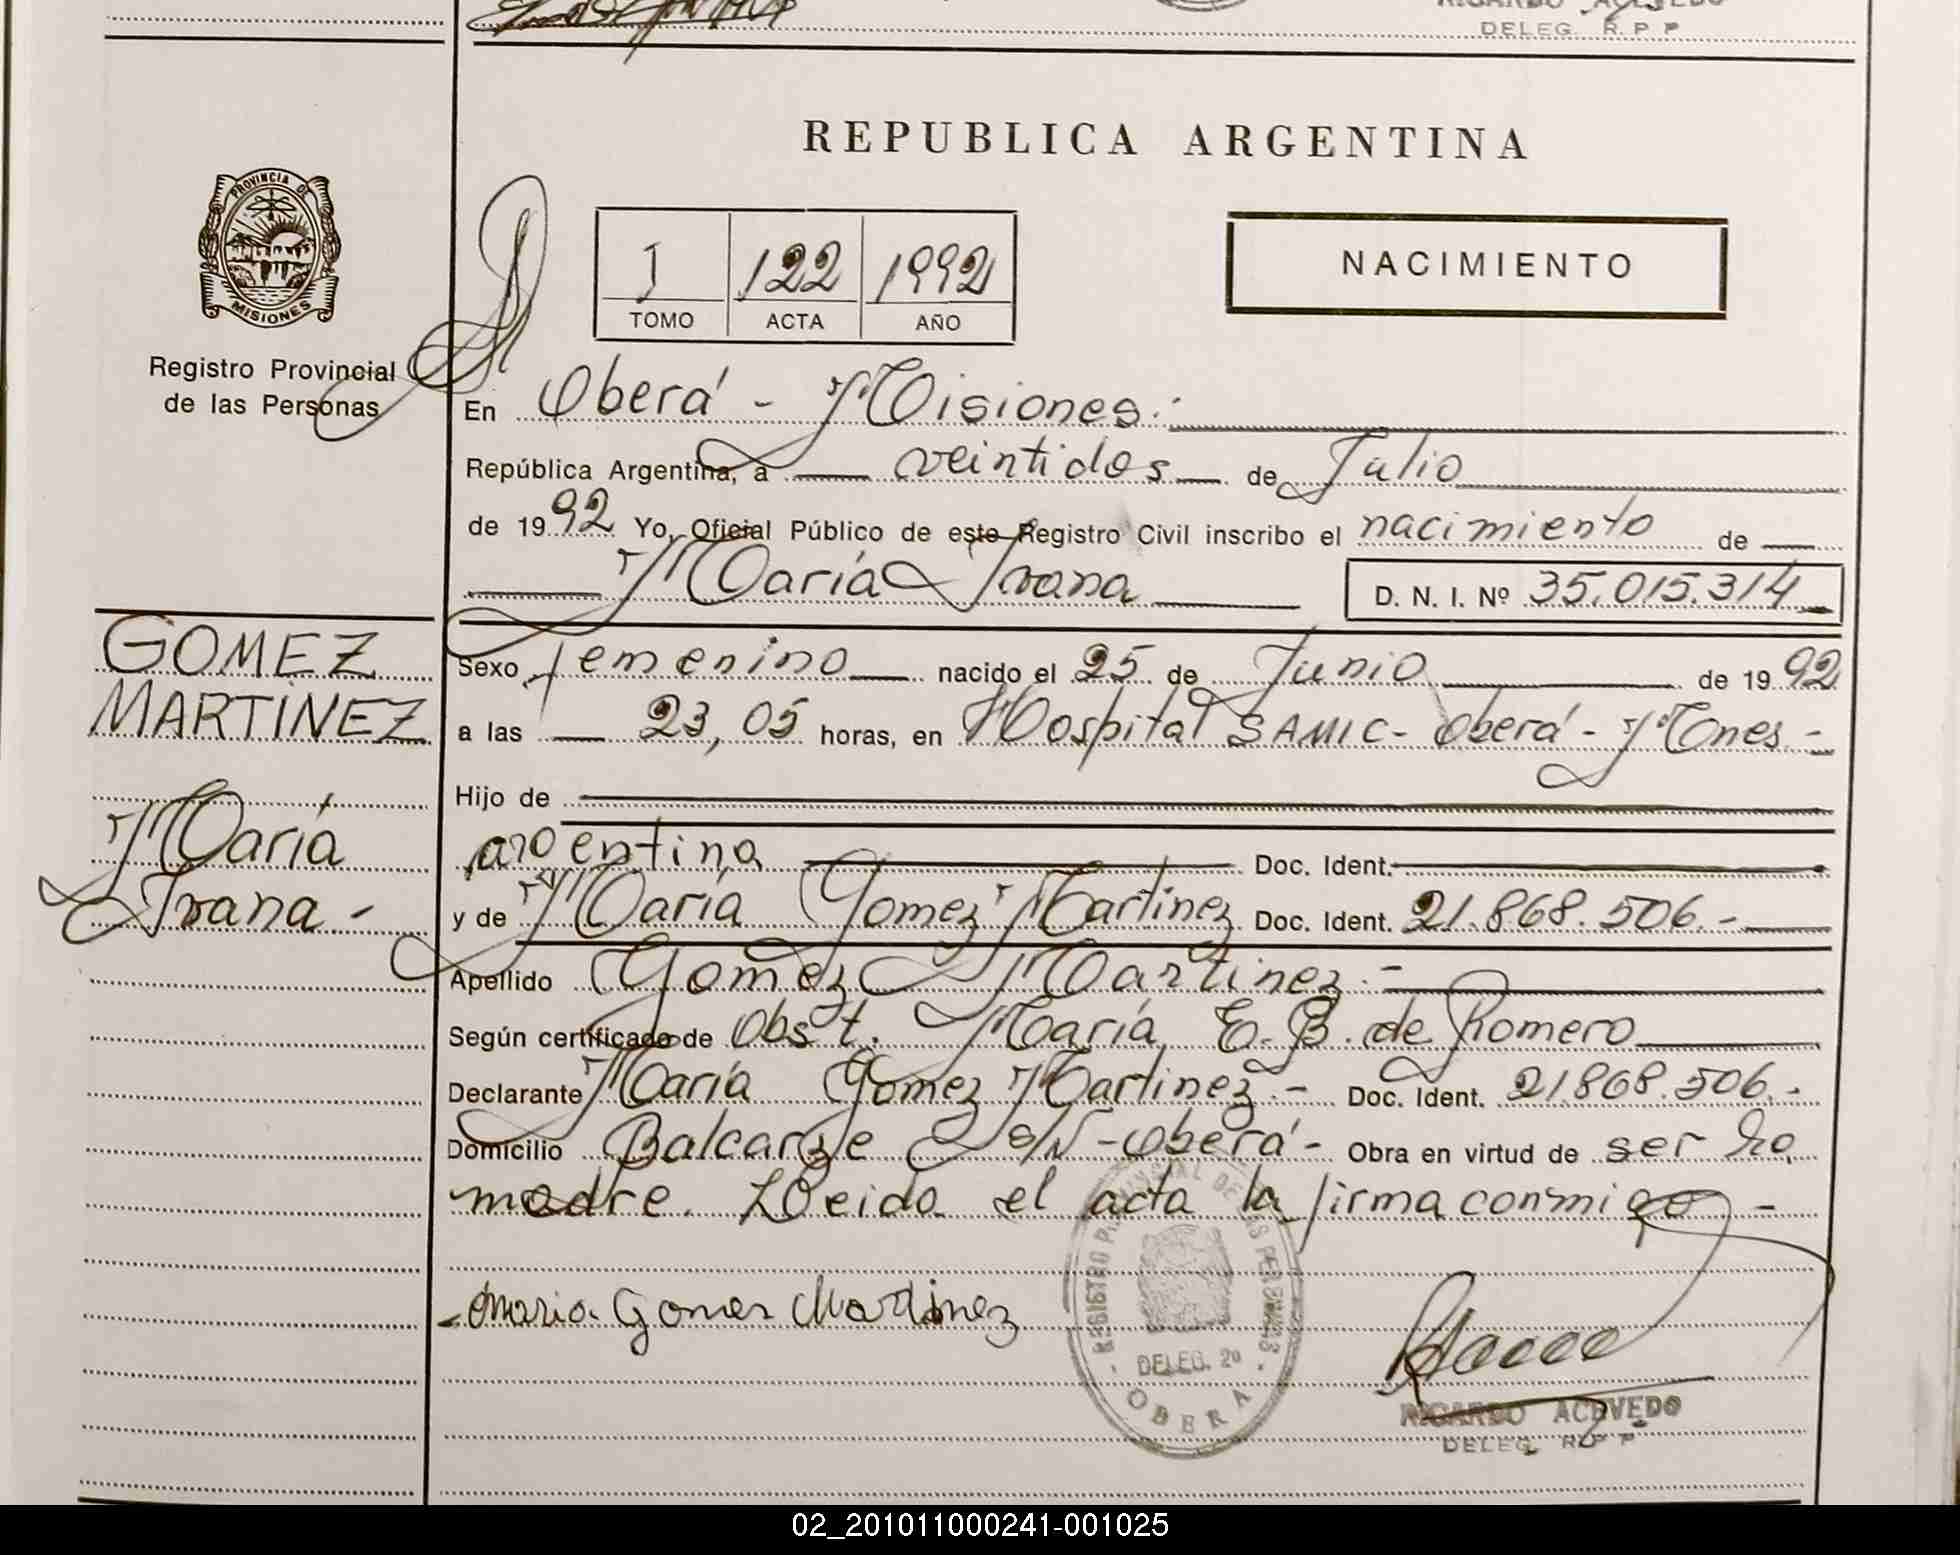 RICARDO ACEVEDO
DELEG. R. P. P.
REPUBLICA ARGENTINA
PROVINCIA DE
MISIONES
Registro Provincial
de las Personas
I 122 1992
TOMO ACTA AÑO
NACIMIENTO
En Oberá - Misiones.-
República Argentina, a veintidos de Julio
de 1992 Yo, Oficial Público de este Registro Civil inscribo el nacimiento de
María Ivana D. N. I. Nº 35.015.314
GOMEZ
MARTINEZ
María
Ivana -
Sexo femenino nacido el 25 de Junio de 1992
a las 23,05 horas, en Hospital SAMIC - Oberá - Mnes -
Hijo de
argentina Doc. Ident.
y de María Gomez Martinez Doc. Ident. 21.868.506.-
Apellido Gomez Martinez.-
Según certificado de Obst. María E. B. de Romero
Declarante María Gomez Martinez.- Doc. Ident. 21.868.506.-
Domicilio Balcarze S/N - Oberá - Obra en virtud de ser la
madre. Leida el acta la firma conmigo -
Maria Gomez Martinez
REGISTRO PROVINCIAL DE LAS PERSONAS
DELEG. 2ª
OBERA
RICARDO ACEVEDO
DELEG. R. P. P.
02_201011000241-001025